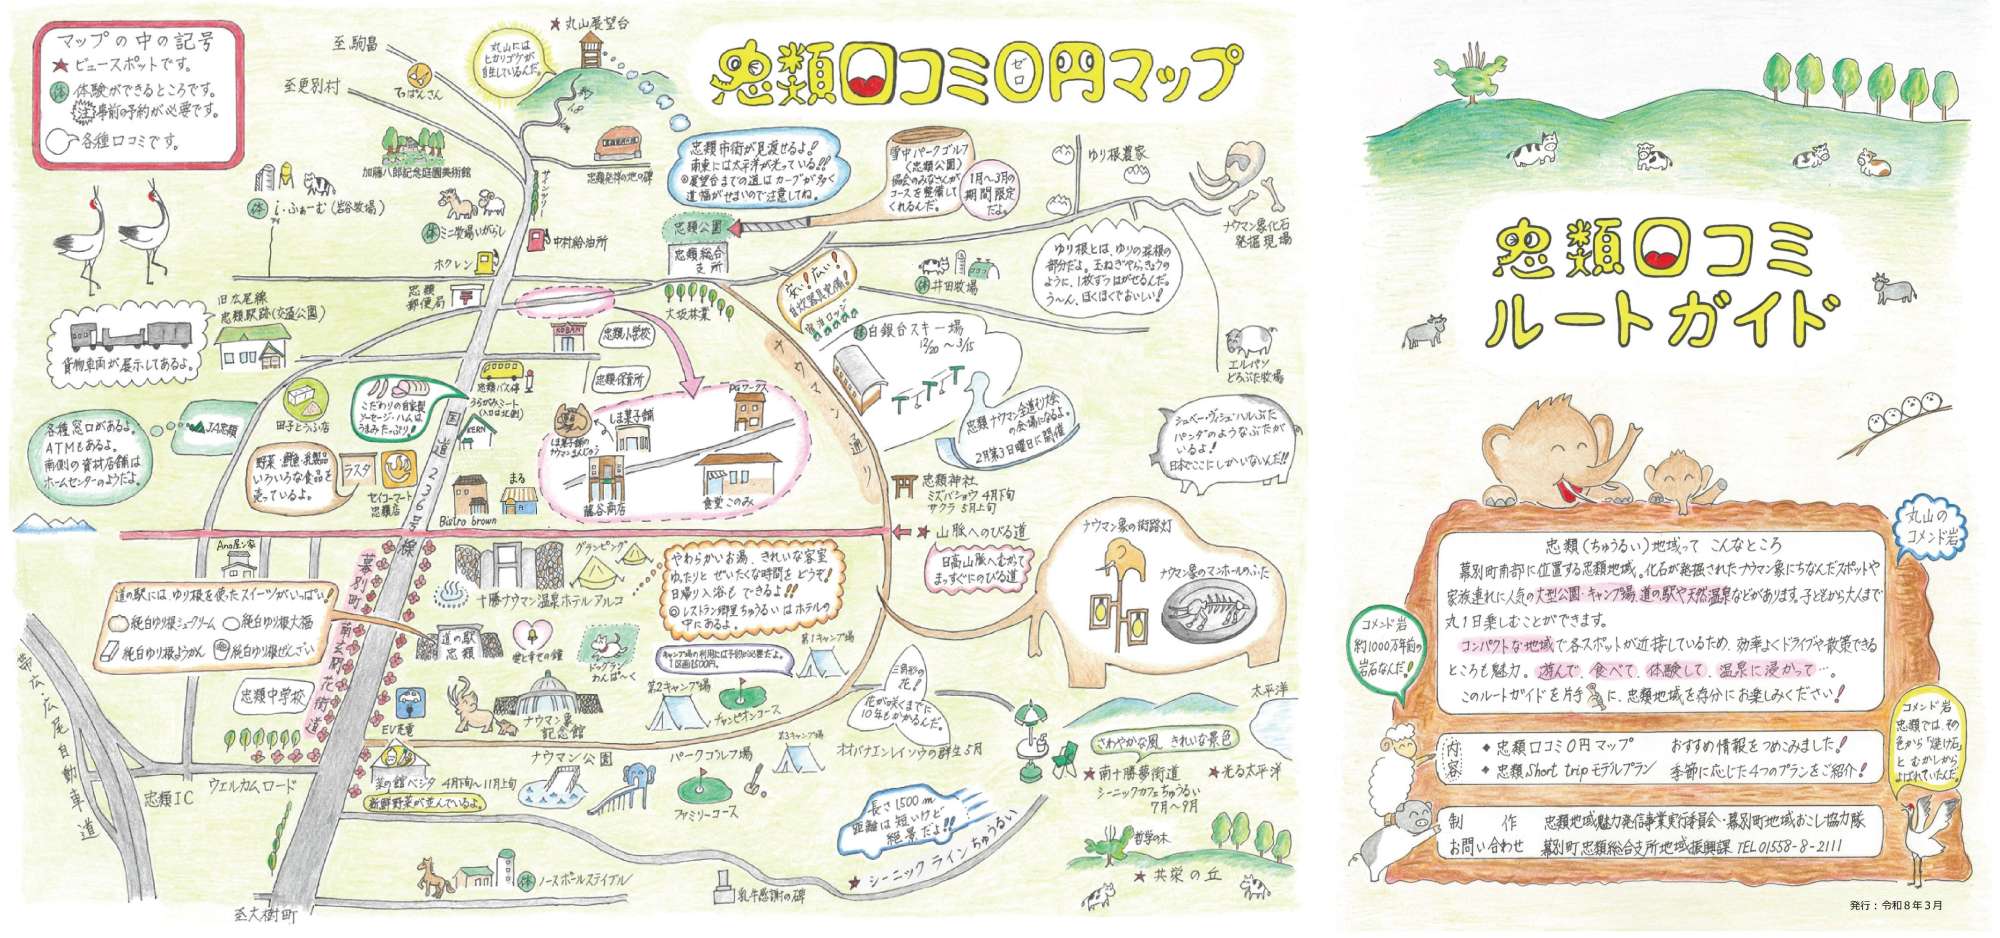 マップの中の記号
★ビュースポットです。
体 体験ができるところです。
注 事前の予約が必要です。
各種口コミです。
至駒畠
至更別村
てっぱんさん
丸山には
ヒカリゴケが
自生しているんだ。
★丸山展望台
忠類口コミ0円マップ
ゼロ
加藤八郎記念庭園美術館
忠類発祥の地の碑
体 i・ふぁーむ(岩谷牧場)
体 ミニ牧場いがらし
サイロツリー
中村給油所
ホクレン
忠類市街が見渡せるよ!
南東には太平洋が光っている!!
◎展望台までの道はカーブが多く
道幅がせまいので注意してね。
雪中パークゴルフ
(忠類公園)
協会のみなさんが
コースを整備して
くれるんだ。
1月~3月の
期間限定
だよ。
ゆり根農家
ナウマン象化石
発掘現場
忠類公園
忠類総合
支所
大坂林業
ゆり根とは、ゆりの球根の
部分だよ。玉ねぎやらっきょうの
ように、1枚ずつはがせるんだ。
う~ん、ほくほくでおいしい!
体 井田牧場
安い!広い!
自炊器具完備!
宿泊ロッジ
体 白銀台スキー場
12/20 ~ 3/15
忠類ナウマン全道そり大会
の会場になるよ。
2月第3日曜日に開催
エルパソ
どろぶた牧場
シュベービッシュ・ハルぶた
パンダのようなぶたが
いるよ!
日本でここにしかいないんだ!!
旧広尾線
忠類駅跡(交通公園)
貨物車両が展示してあるよ。
忠類
郵便局
KOBAN
忠類小学校
忠類保育所
忠類バス停
うらがみミート
(入口は北側)
KERN
こだわりの自家製
ソーセージ・ハムは
うまみたっぷり!
田子とうふ店
JA忠類
各種窓口があるよ。
ATMもあるよ。
南側の資材店舗は
ホームセンターのようだよ。
野菜・鮮魚・乳製品
いろいろな食品を
売っているよ。
ラスタ
セイコーマート
忠類店
国道236号線
Bistro brown
まる
PGワークス
しま菓子舗
しま菓子舗の
ナウマンまんじゅう
藤谷商店
食堂このみ
ナウマン通り
忠類神社
ミズバショウ 4月下旬
サクラ 5月上旬
★山脈へのびる道
日高山脈へむかって
まっすぐにのびる道
ナウマン象の街路灯
ナウマン象のマンホールのふた
Ano屋ン家
道の駅には、ゆり根を使ったスイーツがいっぱい!
純白ゆり根シュークリーム
純白ゆり根大福
純白ゆり根ようかん
純白ゆり根ぜんざい
幕別町 南玄関花街道
グランピング
十勝ナウマン温泉ホテルアルコ
やわらかいお湯、きれいな客室
ゆったりと ぜいたくな時間を どうぞ!
日帰り入浴も できるよ!!
◎レストラン郷里ちゅうるいはホテルの
中にあるよ。
道の駅
忠類
愛と幸せの鐘
ドッグラン
わんぱ~く
キャンプ場の利用には予約が必要だよ。
1区画1500円。
第1キャンプ場
第2キャンプ場
第3キャンプ場
チャンピオンコース
忠類中学校
EV充電
ナウマン象
記念館
三角形の
花!
花が咲くまでに
10年もかかるんだ。
オオバナエンレイソウの群生 5月
太平洋
さわやかな風 きれいな景色
★南十勝夢街道
シーニックカフェちゅうるい
7月~9月
★光る太平洋
帯広・広尾自動車道
忠類IC
ウェルカムロード
菜の館ベジタ 4月下旬~11月上旬
新鮮野菜が並んでいるよ。
ナウマン公園
パークゴルフ場
ファミリーコース
長さ1,500m
距離は短いけど
絶景だよ!!
★シーニックラインちゅうるい
哲学の木
★共栄の丘
体 ノースポールステイブル
乳牛感謝の碑
至大樹町
忠類口コミ
ルートガイド
丸山の
コメンド岩
忠類(ちゅうるい)地域って こんなところ
幕別町南部に位置する忠類地域。化石が発掘されたナウマン象にちなんだスポットや
家族連れに人気の大型公園・キャンプ場、道の駅や天然温泉などがあります。子どもから大人まで
丸1日楽しむことができます。
コンパクトな地域で各スポットが近接しているため、効率よくドライブや散策できる
ところも魅力。遊んで、食べて、体験して、温泉に浸かって…
このルートガイドを片手に、忠類地域を存分にお楽しみください!
コメンド岩
約1000万年前の
岩石なんだ!
コメンド岩
忠類では、その
色から「焼け石」
と むかしから
よばれていたんだ。
内容
◆忠類口コミ0円マップ おすすめ情報をつめこみました!
◆忠類Short tripモデルプラン 季節に応じた4つのプランをご紹介!
制作 忠類地域魅力発信事業実行委員会・幕別町地域おこし協力隊
お問い合わせ 幕別町忠類総合支所地域振興課 TEL01558-8-2111
発行：令和8年3月